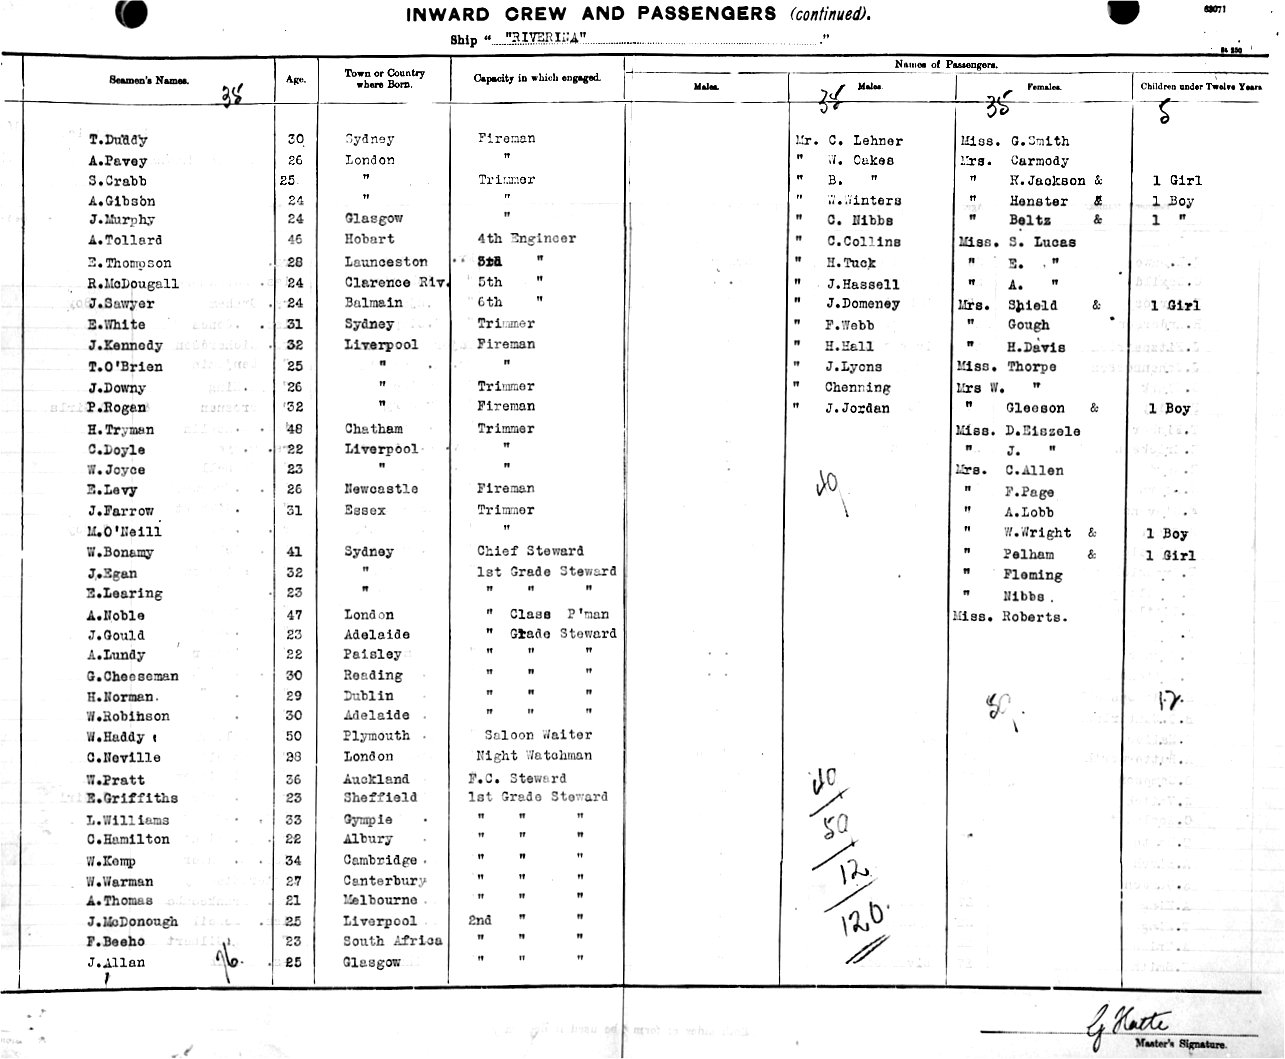 INWARD CREW AND PASSENGERS (continued).
68071
Ship " "RIVERINA" "
Seamen's Names. Age. Town or Country where Born. Capacity in which engaged. Names of Passengers.
Males. Males. Females. Children under Twelve Years
35 38 35 5
T.Duddy 30 Sydney Fireman Mr. C. Lehner Miss. G.Smith
A.Pavey 26 London " " W. Cakes Mrs. Carmody
S.Crabb 25 " Trimmer " B. " " H.Jackson & 1 Girl
A.Gibson 24 " " " W.Winters " Henster & 1 Boy
J.Murphy 24 Glasgow " " C. Nibbs " Beltz & 1 "
A.Tollard 46 Hobart 4th Engineer " C.Collins Miss. S. Lucas
E.Thompson 28 Launceston " " H.Tuck " E. "
R.McDougall 24 Clarence Riv. 5th " " J.Hassell " A. "
J.Sawyer 24 Balmain 6th " " J.Domeney Mrs. Shield & 1 Girl
E.White 31 Sydney Trimmer " F.Webb " Gough
J.Kennedy 32 Liverpool Fireman " H.Hall " H.Davis
T.O'Brien 25 " " " J.Lyons Miss. Thorpe
J.Downy 26 " Trimmer " Chenning Mrs W. "
P.Rogan 32 " Fireman " J.Jordan " Gleeson & 1 Boy
H.Tryman 48 Chatham Trimmer Miss. D.Eiszele
C.Doyle 22 Liverpool " " J. "
W.Joyce 23 " " Mrs. C.Allen
E.Levy 26 Newcastle Fireman 40 " F.Page
J.Farrow 31 Essex Trimmer " A.Lobb
M.O'Neill " " W.Wright & 1 Boy
W.Bonamy 41 Sydney Chief Steward " Pelham & 1 Girl
J.Egan 32 " 1st Grade Steward " Fleming
E.Learing 23 " " " " " Nibbs.
A.Noble 47 London " Class P'man Miss. Roberts.
J.Gould 23 Adelaide " Grade Steward
A.Lundy 22 Paisley " " "
G.Cheeseman 30 Reading " " "
H.Norman. 29 Dublin " " " 50 12
W.Robinson 30 Adelaide " " "
W.Haddy 50 Plymouth Saloon Waiter
C.Neville 28 London Night Watchman
W.Pratt 36 Auckland F.C. Steward 40
E.Griffiths 23 Sheffield 1st Grade Steward
L.Williams 33 Gympie " " " 50
C.Hamilton 22 Albury " " "
W.Kemp 34 Cambridge " " " 12
W.Warman 27 Canterbury " " "
A.Thomas 21 Melbourne " " "
J.McDonough 25 Liverpool 2nd " " 120.
F.Beeho 23 South Africa " " "
J.Allan 76. 25 Glasgow " " "
Master's Signature.